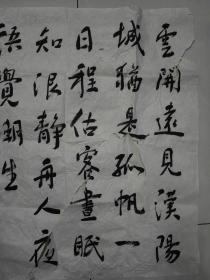 雲開遠見漢陽
城猶是孤帆一
日程估客晝眠
知浪靜舟人夜
語覺潮生